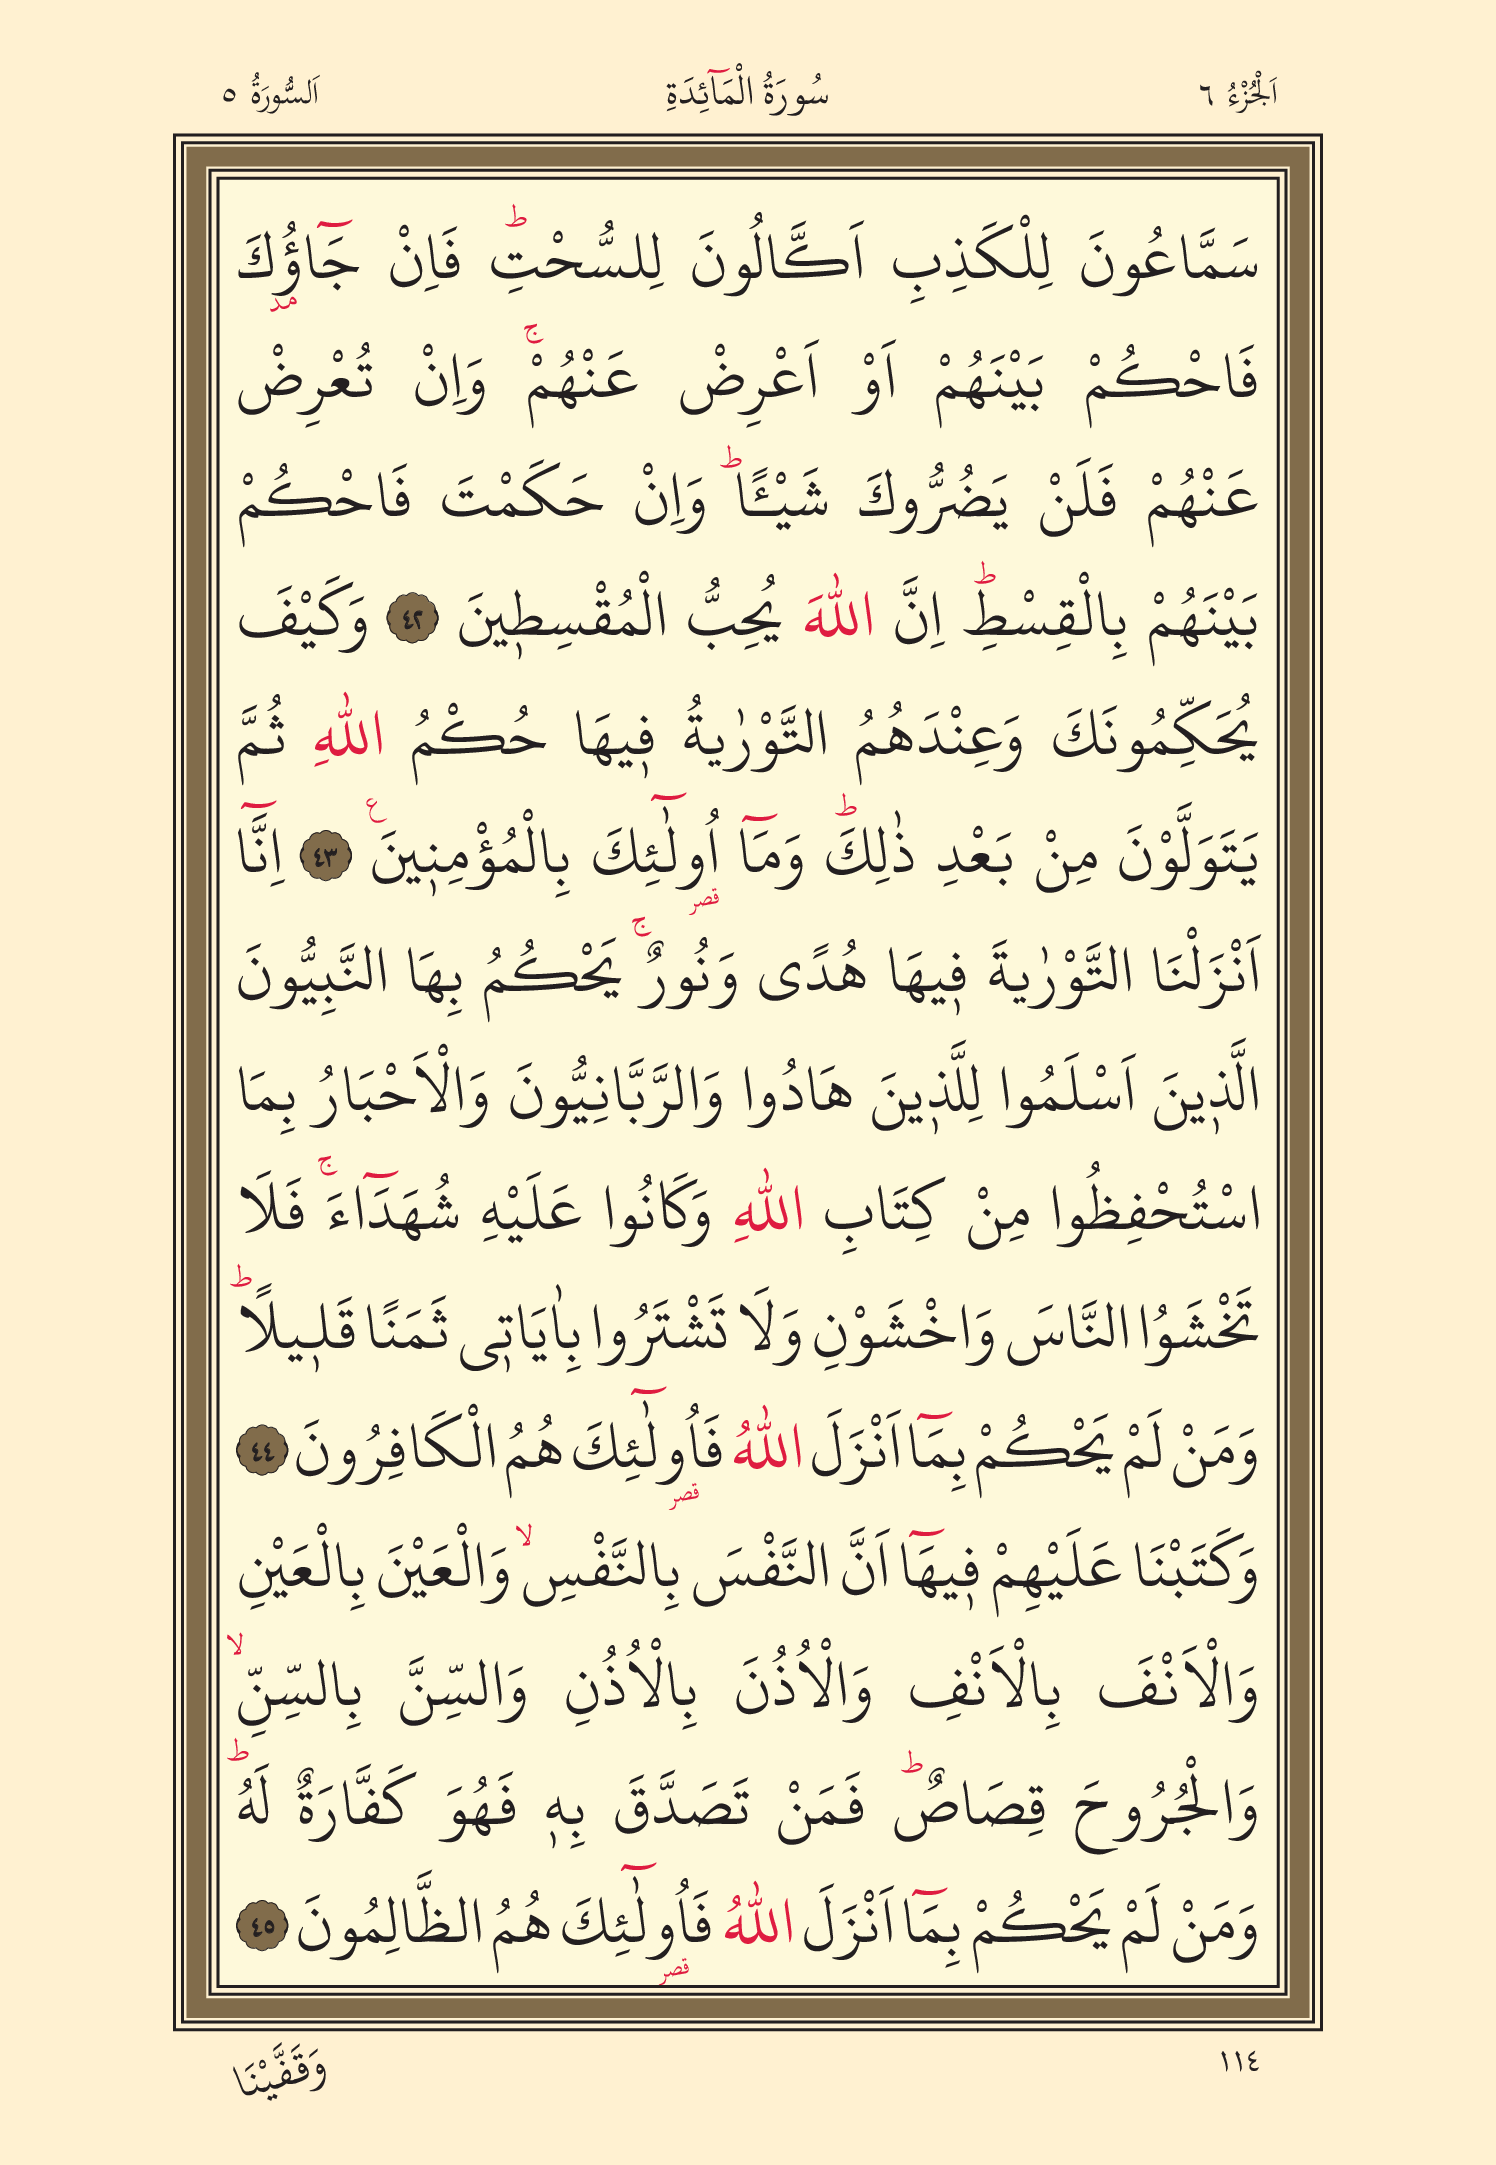 اَلْجُزْءُ ٦ سُورَةُ الْمَٓائِدَةِ اَلسُّورَةُ ٥
سَمَّاعُونَ لِلْكَذِبِ اَكَّالُونَ لِلسُّحْتِۜ فَاِنْ جَٓاؤُ۫كَ
مد
فَاحْكُمْ بَيْنَهُمْ اَوْ اَعْرِضْ عَنْهُمْۚ وَاِنْ تُعْرِضْ
عَنْهُمْ فَلَنْ يَضُرُّوكَ شَيْـًٔاۜ وَاِنْ حَكَمْتَ فَاحْكُمْ
بَيْنَهُمْ بِالْقِسْطِۜ اِنَّ اللّٰهَ يُحِبُّ الْمُقْسِط۪ينَ ﴿٤٢﴾ وَكَيْفَ
يُحَكِّمُونَكَ وَعِنْدَهُمُ التَّوْرٰيةُ ف۪يهَا حُكْمُ اللّٰهِ ثُمَّ
يَتَوَلَّوْنَ مِنْ بَعْدِ ذٰلِكَۜ وَمَٓا اُو۬لٰٓئِكَ بِالْمُؤْمِن۪ينَ۟ ﴿٤٣﴾ اِنَّٓا
قصر
اَنْزَلْنَا التَّوْرٰيةَ ف۪يهَا هُدًى وَنُورٌۚ يَحْكُمُ بِهَا النَّبِيُّونَ
الَّذ۪ينَ اَسْلَمُوا لِلَّذ۪ينَ هَادُوا وَالرَّبَّانِيُّونَ وَالْاَحْبَارُ بِمَا
اسْتُحْفِظُوا مِنْ كِتَابِ اللّٰهِ وَكَانُوا عَلَيْهِ شُهَدَٓاءَۚ فَلَا
تَخْشَوُا النَّاسَ وَاخْشَوْنِ وَلَا تَشْتَرُوا بِاٰيَات۪ى ثَمَنًا قَل۪يلًاۜ
وَمَنْ لَمْ يَحْكُمْ بِمَٓا اَنْزَلَ اللّٰهُ فَاُو۬لٰٓئِكَ هُمُ الْكَافِرُونَ ﴿٤٤﴾
قصر
وَكَتَبْنَا عَلَيْهِمْ ف۪يهَٓا اَنَّ النَّفْسَ بِالنَّفْسِۙ وَالْعَيْنَ بِالْعَيْنِ
وَالْاَنْفَ بِالْاَنْفِ وَالْاُذُنَ بِالْاُذُنِ وَالسِّنَّ بِالسِّنِّۙ
وَالْجُرُوحَ قِصَاصٌۜ فَمَنْ تَصَدَّقَ بِه۪ فَهُوَ كَفَّارَةٌ لَهُۜ
وَمَنْ لَمْ يَحْكُمْ بِمَٓا اَنْزَلَ اللّٰهُ فَاُو۬لٰٓئِكَ هُمُ الظَّالِمُونَ ﴿٤٥﴾
قصر
١١٤ وَقَفَّيْنَا